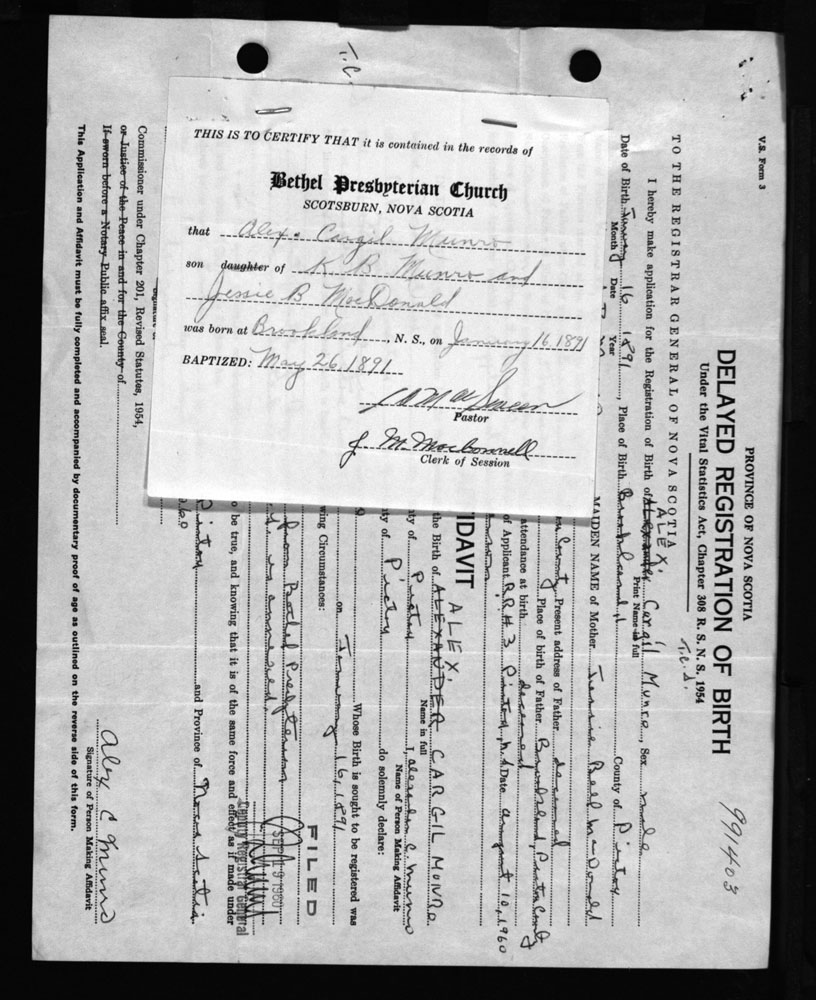 THIS IS TO CERTIFY THAT it is contained in the records of
Bethel Presbyterian Church
SCOTSBURN, NOVA SCOTIA
that Alex. Cargil Munro
son daughter of K B Munro and
Jessie B MacDonald
was born at Brookland, N. S., on January 16, 1891
BAPTIZED: May 26, 1891
Pastor
J. M. MacConnell
Clerk of Session
T.C.
V.S. Form 3
991403
PROVINCE OF NOVA SCOTIA
DELAYED REGISTRATION OF BIRTH
Under the Vital Statistics Act, Chapter 308 R. S. N. S. 1954
T.C.S.
TO THE REGISTRAR GENERAL OF NOVA SCOTIA
ALEX.
I hereby make application for the Registration of Birth of Alexander Cargil Munro, Sex male
Print Name in full
Date of Birth January 16 1891, Place of Birth Brookland, County of Pictou
Month Date Year
MAIDEN NAME of Mother Jessie Bell MacDonald
County Present address of Father deceased
Place of birth of Father Brookland, Pictou County
attendance at birth deceased
of Applicant R.R.# 3 Pictou, N.S Date August 10, 1960
FIDAVIT
ALEX.
the Birth of ALEXANDER CARGIL MUNRO
Name in full
I, Alexander C. Munro
Name of Person Making Affidavit
ty of Pictou
ty of Pictou do solemnly declare:
Whose Birth is sought to be registered was
on January 16, 1891
wing Circumstances:
from Bethel Presbyterian
FILED
SEP 19 1960
Deputy Registrar General
o be true, and knowing that it is of the same force and effect as if made under
Pictou and Province of Nova Scotia
Alex C Munro
Signature of Person Making Affidavit
Commissioner under Chapter 201, Revised Statutes, 1954,
or Justice of the Peace in and for the County of
If sworn before a Notary Public affix seal.
This Application and Affidavit must be fully completed and accompanied by documentary proof of age as outlined on the reverse side of this form.